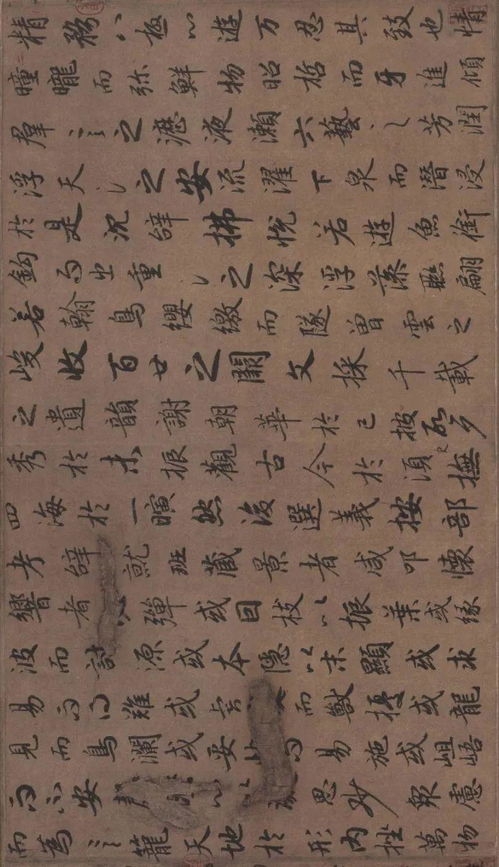 精騖八極心遊万忍其致也情
曈曨而弥鮮物昭晢而互進傾
群言之瀝液漱六藝之芳潤
浮天淵之安流濯下泉而潛浸
於是沉辭怫悅若遊魚銜
鈎而出重淵之深浮藻聯翩
若翰鳥纓繳而墜曾雲之
峻收百廿之闕文採千載
之遺韻謝朝華於已披啓夕
秀於未振觀古今於須臾撫
四海於一瞚然後選義按部
考辭就班藏景者咸叩懷
響者彈或因枝以振葉或緣
波而討源或本隱以末顯或求
易而得難或虎而獸擾或龍
見而鳥瀾或妥而易施或岨峿
而不安心以思眇衆慮
而為言籠天地於形内挫萬物